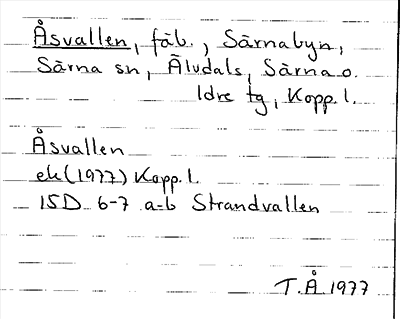 Åsvallen, fäb., Särnabyn,
Särna sn, Älvdals, Särna o.
Idre tg, Kopp. l.
Åsvallen
ek (1977) Kopp. l.
15D 6-7 a-b Strandvallen
T.Å 1977